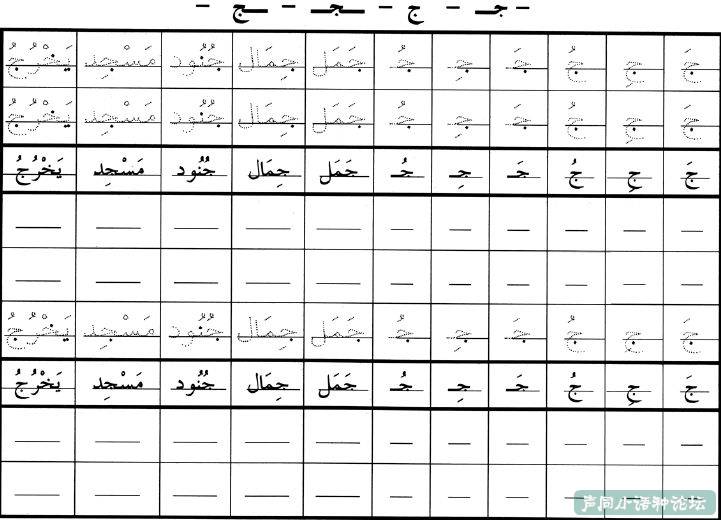 - جـ - ج - ـجـ - ـج -
جَ جِ جُ جَـ جِـ جُـ جَمَل جِمَال جُنُود مَسْجِد يَخْرُجُ
جَ جِ جُ جَـ جِـ جُـ جَمَل جِمَال جُنُود مَسْجِد يَخْرُجُ
جَ جِ جُ جَـ جِـ جُـ جَمَل جِمَال جُنُود مَسْجِد يَخْرُجُ
جَ جِ جُ جَـ جِـ جُـ جَمَل جِمَال جُنُود مَسْجِد يَخْرُجُ
جَ جِ جُ جَـ جِـ جُـ جَمَل جِمَال جُنُود مَسْجِد يَخْرُجُ
声同小语种论坛